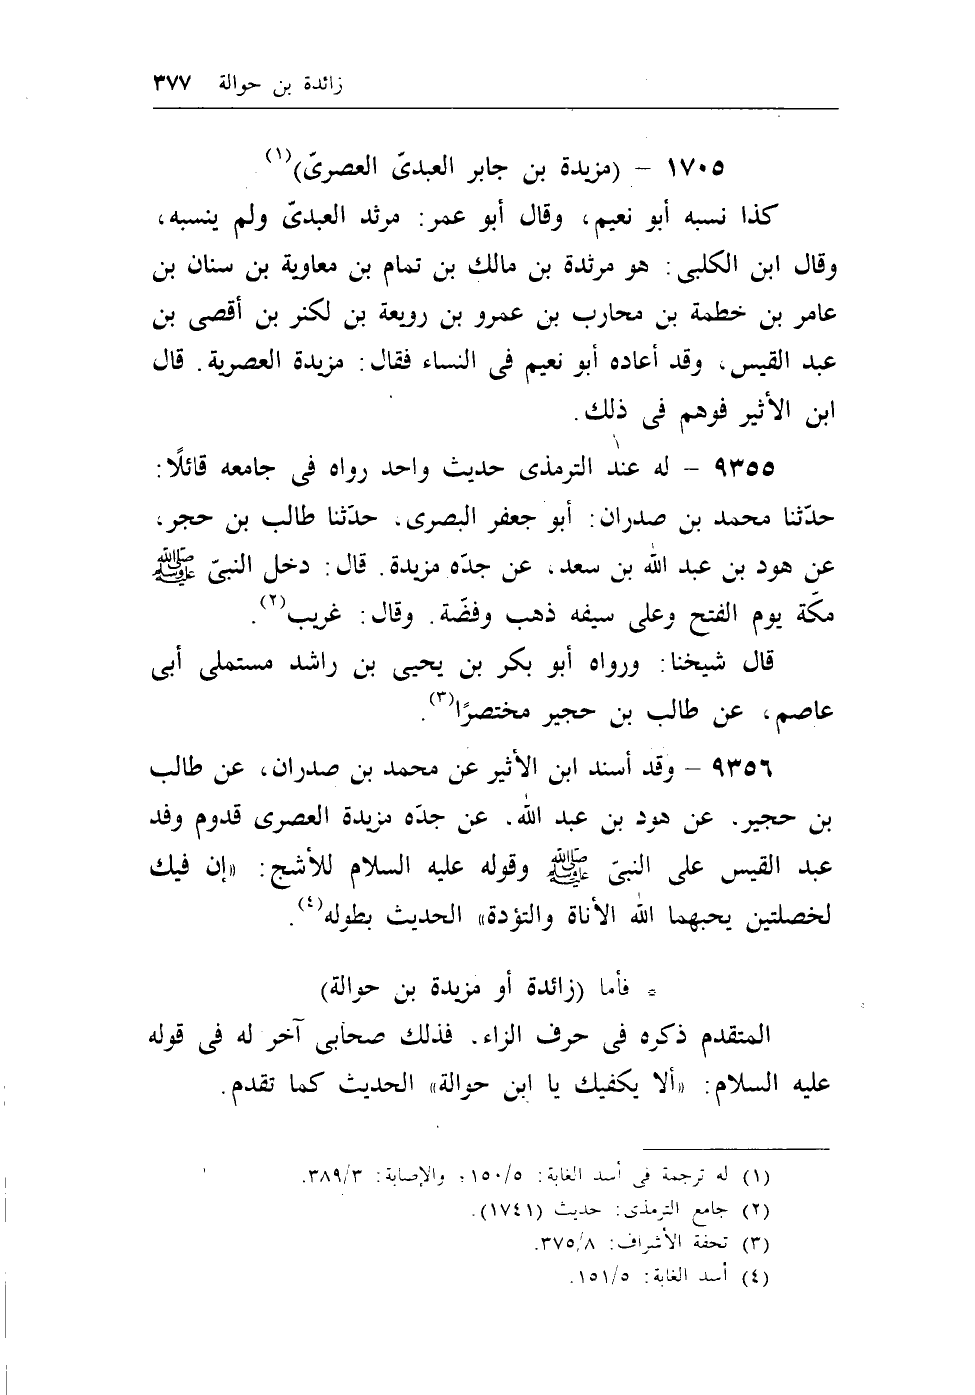 زائدة بن حوالة ٣٧٧
١٧٠٥ - (مزيدة بن جابر العبدىّ العصرىّ)(١)
كذا نسبه أبو نعيم، وقال أبو عمر: مرثد العبدىّ ولم ينسبه،
وقال ابن الكلبى: هو مرثدة بن مالك بن تمام بن معاوية بن سنان بن
عامر بن خطمة بن محارب بن عمرو بن رويعة بن لكنر بن أقصى بن
عبد القيس، وقد أعاده أبو نعيم فى النساء فقال: مزيدة العصرية. قال
ابن الأثير فوهم فى ذلك.
٩٣٥٥ - له عند الترمذى حديث واحد رواه فى جامعه قائلًا:
حدّثنا محمد بن صدران: أبو جعفر البصرى، حدّثنا طالب بن حجر،
عن هود بن عبد الله بن سعد، عن جدّه مزيدة. قال: دخل النبىّ ﷺ
مكّة يوم الفتح وعلى سيفه ذهب وفضّة. وقال: غريب(٢).
قال شيخنا: ورواه أبو بكر بن يحيى بن راشد مستملى أبى
عاصم، عن طالب بن حجير مختصرًا(٣).
٩٣٥٦ - وقد أسند ابن الأثير عن محمد بن صدران، عن طالب
بن حجير. عن هود بن عبد الله. عن جدّه مزيدة العصرى قدوم وفد
عبد القيس على النبىّ ﷺ وقوله عليه السلام للأشج: «إن فيك
لخصلتين يحبهما الله الأناة والتؤدة» الحديث بطوله(٤).
* فأما (زائدة أو مزيدة بن حوالة)
المتقدم ذكره فى حرف الزاء. فذلك صحابى آخر له فى قوله
عليه السلام: «ألا يكفيك يا ابن حوالة» الحديث كما تقدم.
(١) له ترجمة فى أسد الغابة: ١٥٠/٥؛ والإصابة: ٣٨٩/٣.
(٢) جامع الترمذى: حديث (١٧٤١).
(٣) تحفة الأشراف: ٣٧٥/٨.
(٤) أسد الغابة: ١٥١/٥.